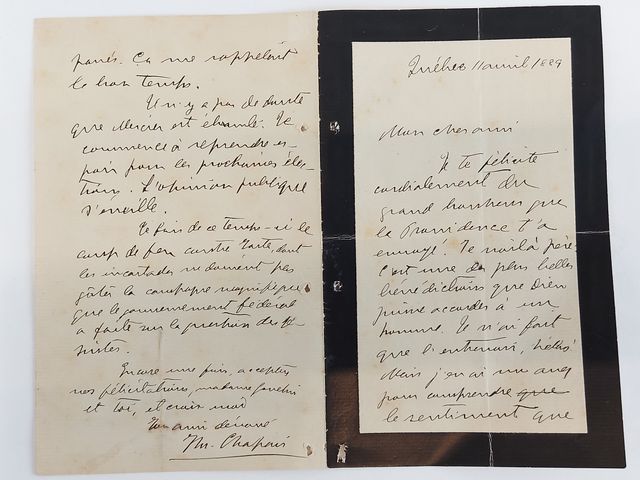 Québec 11 avril 1889
Mon cher ami
Je te félicite
cordialement du
grand bonheur que
la Providence t'a
envoyé. Te voilà père.
C'est une des plus belles
bénédictions que Dieu
puisse accorder à un
homme. Je n'ai fait
que l'entrevoir, hélas!
Mais j'en ai eu assez
pour comprendre que
le sentiment que
passés. Ça me rappelait
le bon temps.
Il n'y a pas de doute
que Mercier est ébranlé. Je
commence à reprendre es-
poir pour les prochaines élec-
tions. L'opinion publique
s'éveille.
Je fais de ce temps-ci le
coup de feu contre Tarte, dont
les incartades ne doivent pas
gâter la campagne magnifique
que le gouvernement fédéral
a faite sur la question des Jé-
suites.
Encore une fois, acceptez
nos félicitations, madame
et toi, et crois moi
Ton ami dévoué
Th. Chapais